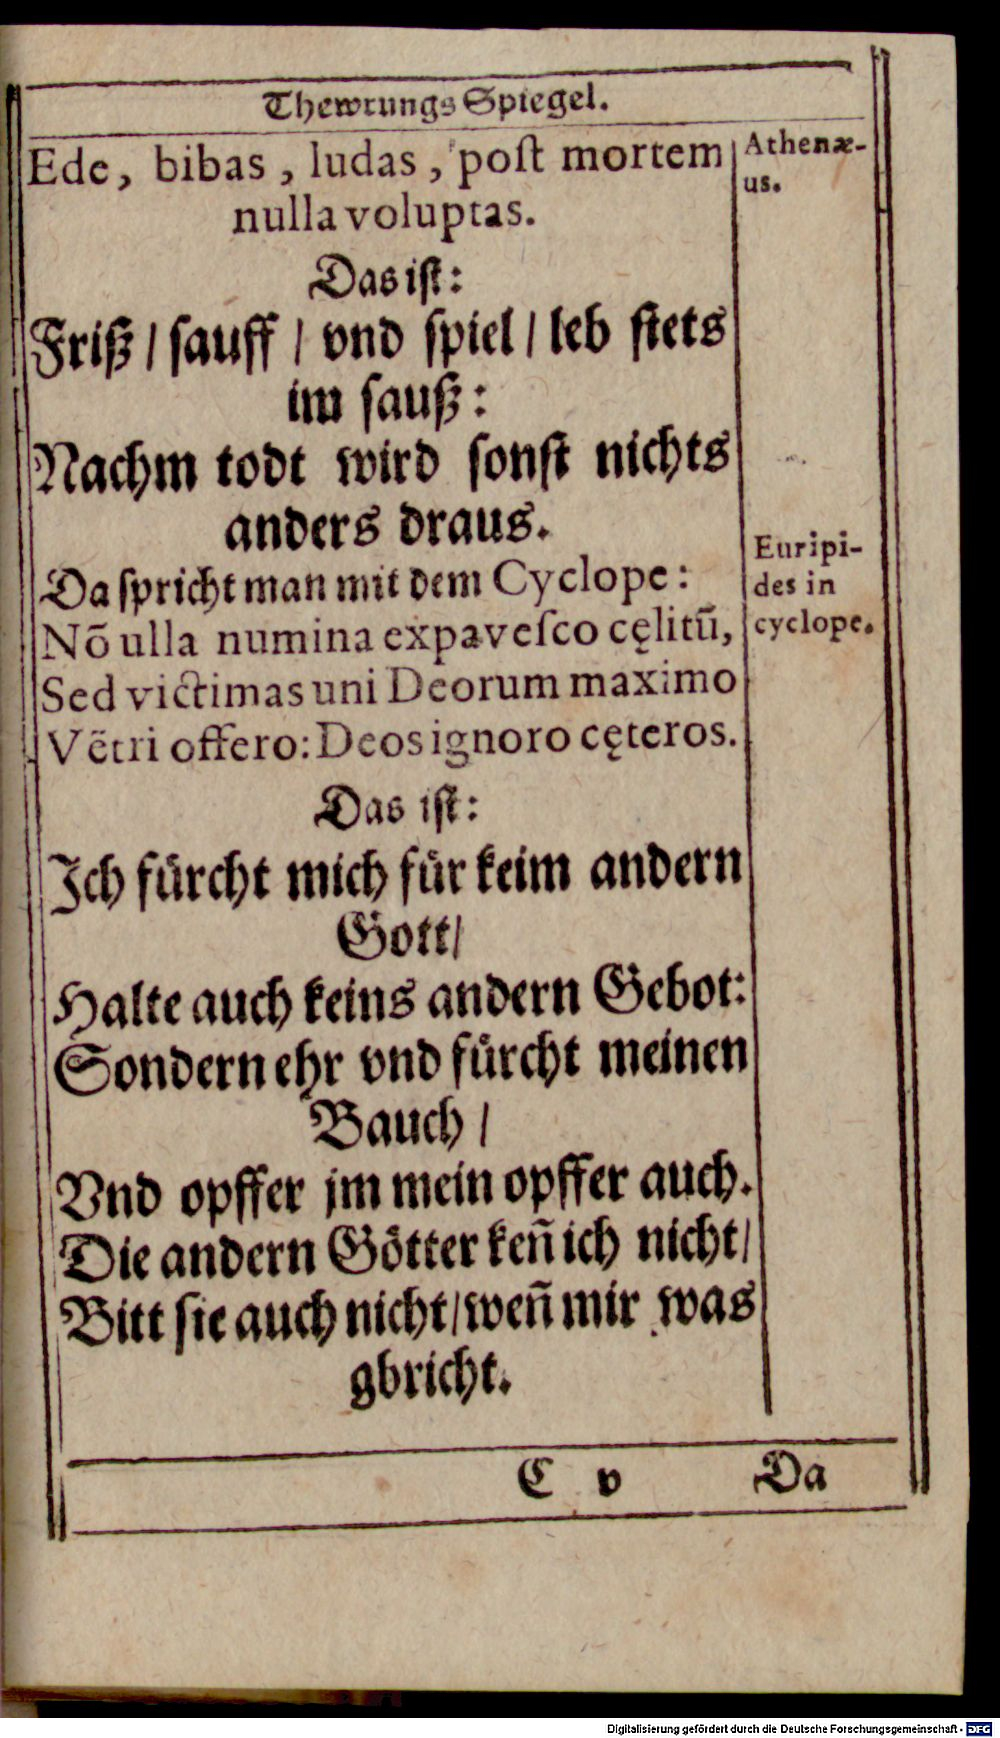 Thewrungs Spiegel.
Ede, bibas, ludas, poſt mortem
nulla voluptas.
Athenæ-
us.
Das iſt:
Friß / ſauff / vnd ſpiel / leb ſtets
im ſauß:
Nachm todt wird ſonſt nichts
anders draus.
Da ſpricht man mit dem Cyclope:
Nõ ulla numina expaveſco cęlitũ,
Sed victimas uni Deorum maximo
Vẽtri offero: Deos ignoro cęteros.
Euripi-
des in
cyclope.
Das iſt:
Ich fuͤrcht mich fuͤr keim andern
Gott/
Halte auch keins andern Gebot:
Sondern ehr vnd fuͤrcht meinen
Bauch /
Vnd opffer jm mein opffer auch.
Die andern Goͤtter keñ ich nicht/
Bitt ſie auch nicht/ weñ mir was
gbricht.
C v Da
Digitalisierung gefördert durch die Deutsche Forschungsgemeinschaft - DFG